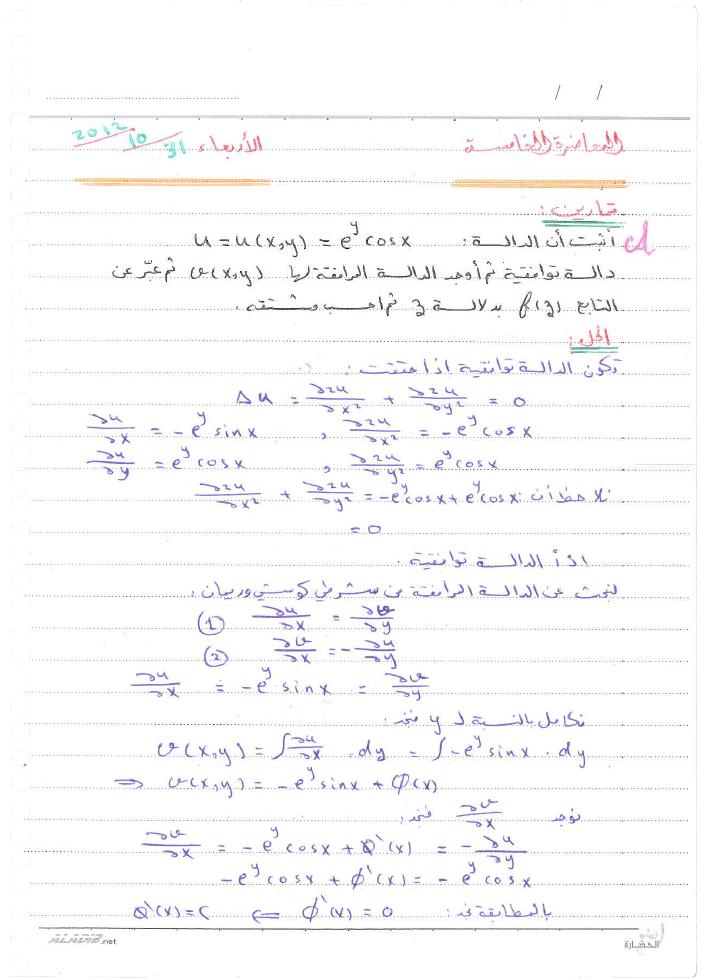 / /
المحاضرة الخامسة الأربعاء 31/10/2012
تمارين:
1) أثبت أن الدالة: u = u(x,y) = e^y cosx
دالة توافقية ثم أوجد الدالة المرافقة لها v(x,y) ثم عبّر عن
التابع f(z) بدلالة z ثم احسب مشتقه.
الحل:
تكون الدالة توافقية اذا حققت:
Δu = ∂²u/∂x² + ∂²u/∂y² = 0
∂u/∂x = -e^y sinx , ∂²u/∂x² = -e^y cosx
∂u/∂y = e^y cosx , ∂²u/∂y² = e^y cosx
نلاحظ أن ∂²u/∂x² + ∂²u/∂y² = -e^y cosx + e^y cosx
= 0
اذاً الدالة توافقية.
لنبحث عن الدالة المرافقة من شرطي كوشي وريمان:
① ∂u/∂x = ∂v/∂y
② ∂v/∂x = -∂u/∂y
∂u/∂x = -e^y sinx = ∂v/∂y
نكامل بالنسبة لـ y فنجد:
v(x,y) = ∫ ∂u/∂x . dy = ∫ -e^y sinx . dy
⇒ v(x,y) = -e^y sinx + φ(x)
نوجد ∂v/∂x فنجد:
∂v/∂x = -e^y cosx + φ'(x) = -∂u/∂y
-e^y cosx + φ'(x) = -e^y cosx
بالمطابقة نجد: φ'(x) = 0 ⇐ φ'(x) = C
ALADIB.net الحضارة